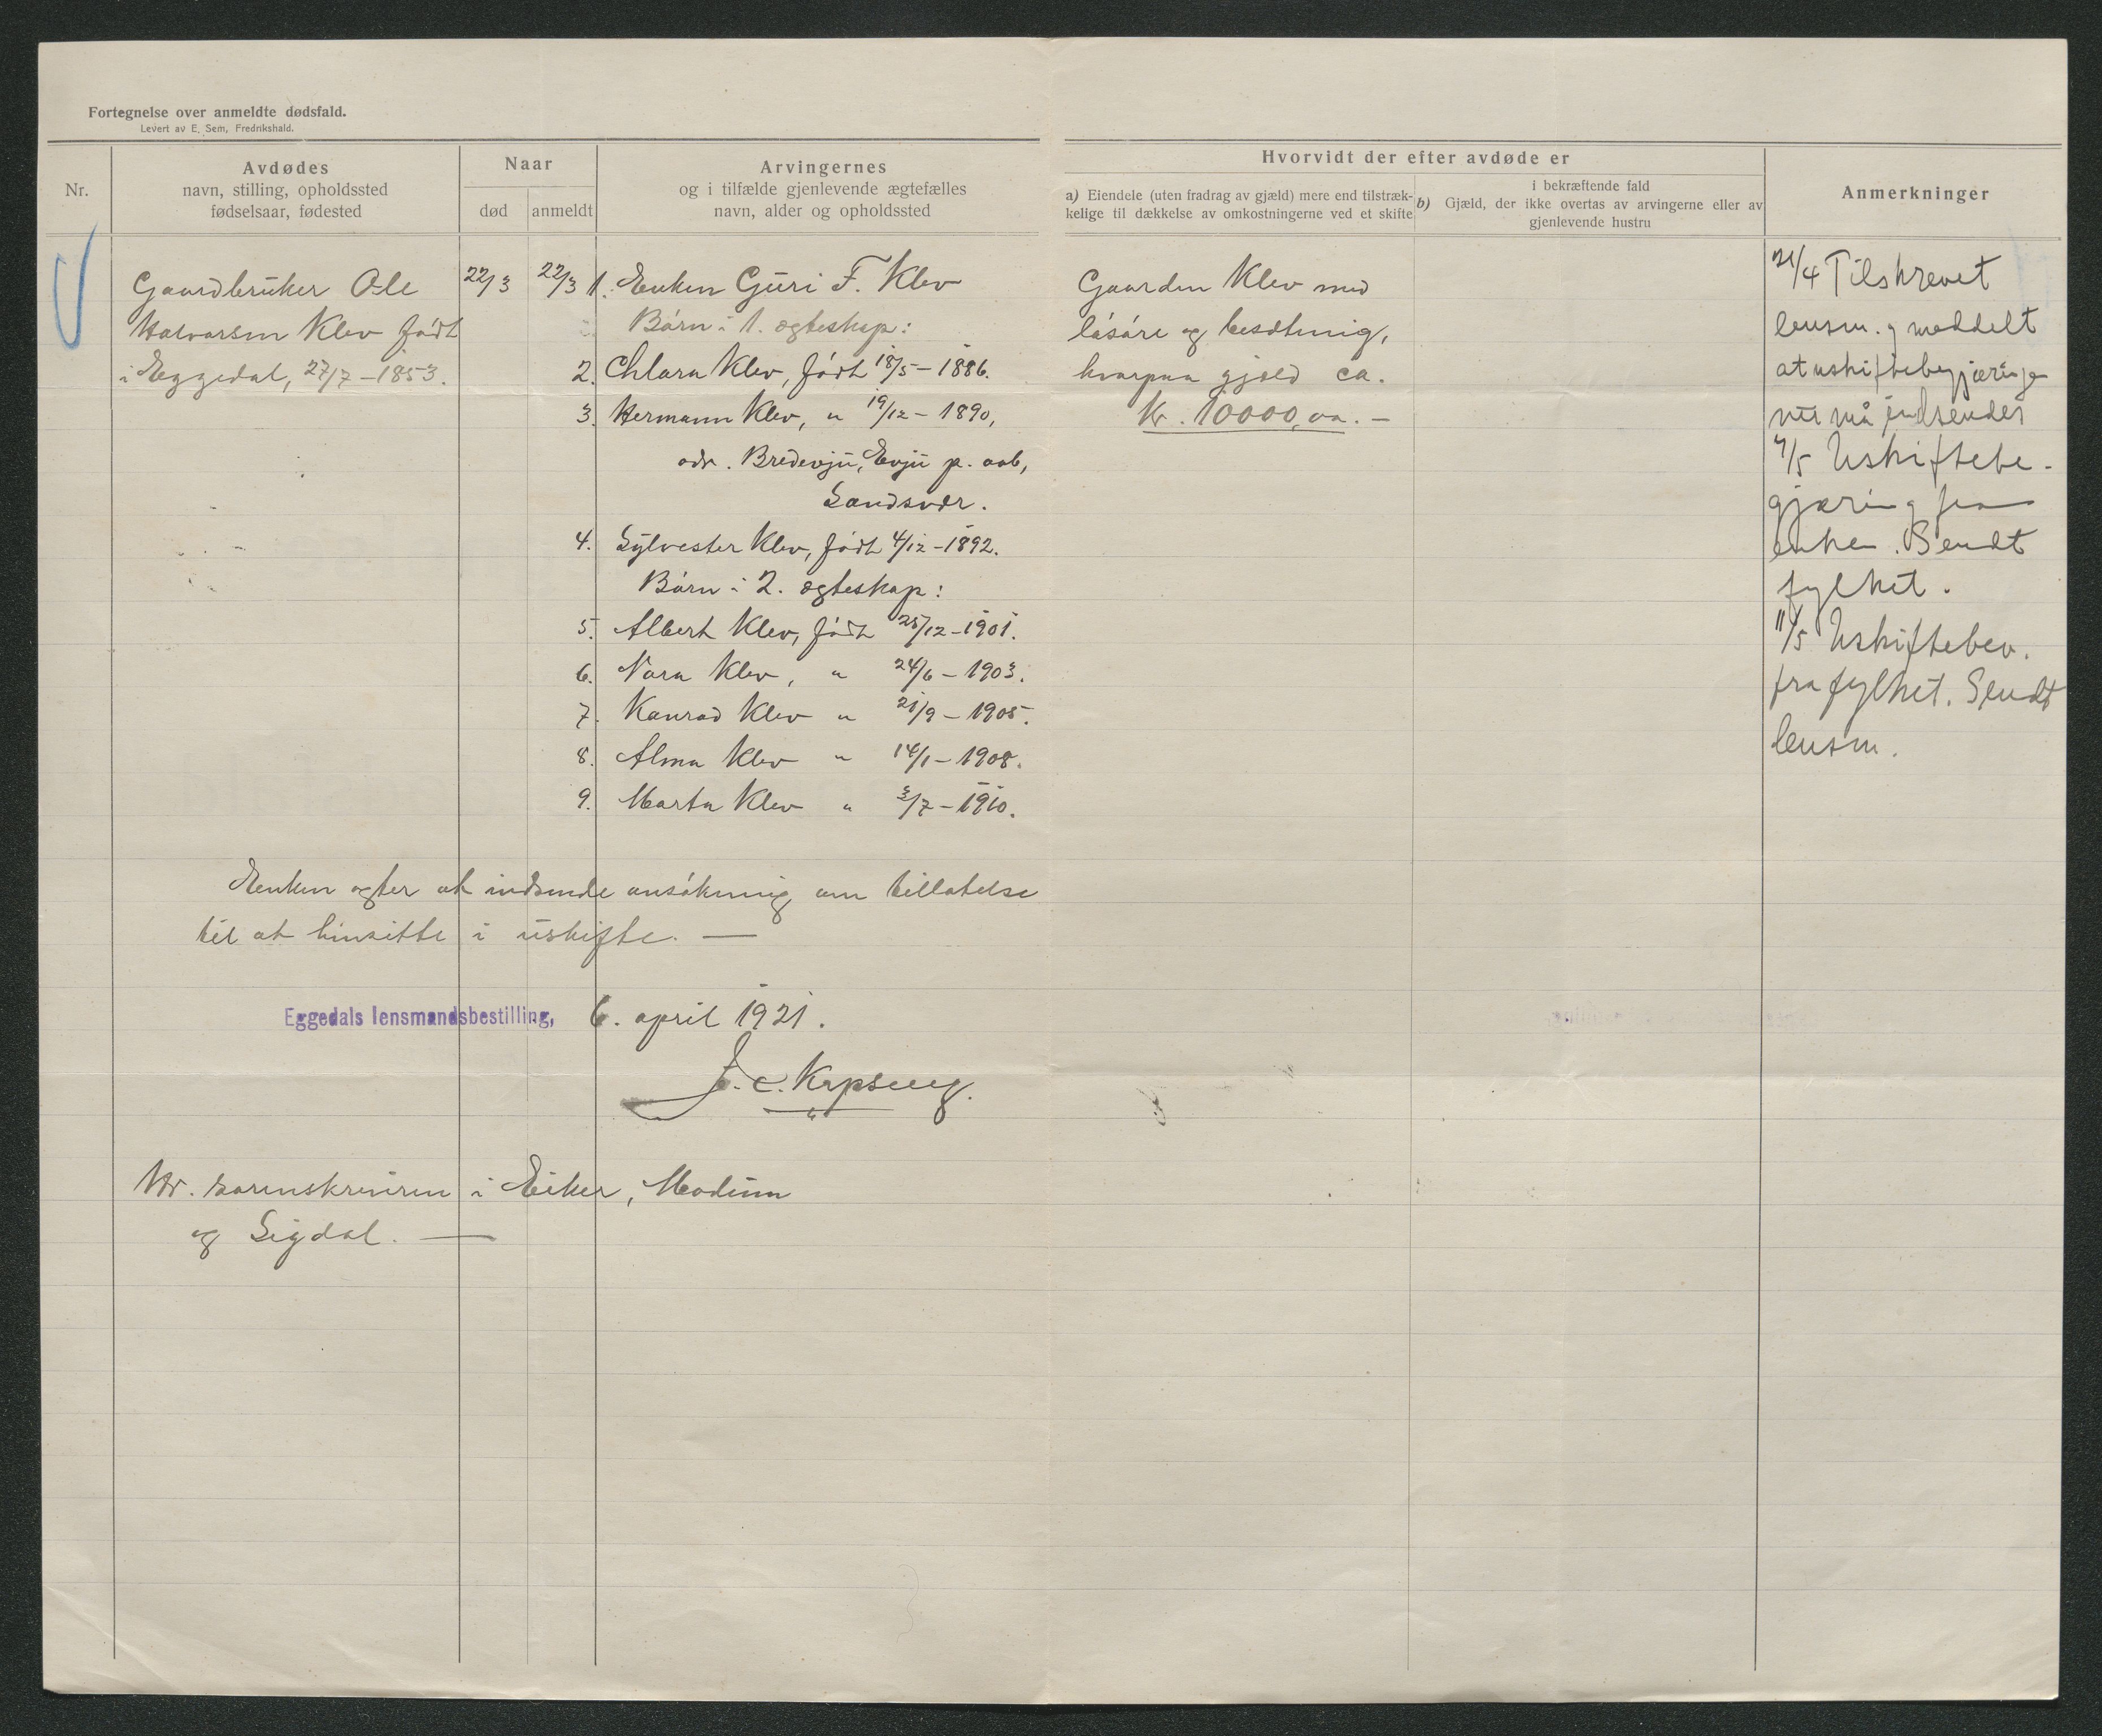 Fortegnelse over anmeldte dødsfald.
Levert av E. Sem, Fredrikshald.
Nr.
Avdødes
navn, stilling, opholdssted
fødselsaar, fødested
Naar
død
anmeldt
Arvingernes
og i tilfælde gjenlevende ægtefælles
navn, alder og opholdssted
Hvorvidt der efter avdøde er
a) Eiendele (uten fradrag av gjæld) mere end tilstræk-
kelige til dækkelse av omkostningerne ved et skifte
i bekræftende fald
b) Gjæld, der ikke overtas av arvingerne eller av
gjenlevende hustru
Anmerkninger
Gaardbruker Ole
Halvorsen Klev født
i Eggedal, 27/7 - 1853.
22/3
22/3
1. Enken Guri F. Klev
Børn i 1. ægteskap:
2. Chlara Klev, født 18/5 - 1886.
3. Hermann Klev, " 19/12 - 1890,
adr. Bredevju, Evju p. aab,
Sandsvær.
4. Sylvester Klev, født 4/12 - 1892.
Børn i 2. ægteskap:
5. Albert Klev, født 25/12 - 1901.
6. Nora Klev, " 24/6 - 1903.
7. Konrad Klev " 21/9 - 1905.
8. Alma Klev " 14/1 - 1908.
9. Marta Klev " 3/7 - 1910.
Gaarden Klev med
løsøre og besætning,
hvorpaa gjæld ca.
Kr. 10000,00. -
21/4 Tilskrevet
lensm. og meddelt
at uskiftebegjæringen
nu må indsendes
4/5 Uskiftebe-
gjæring fra
enken. Sendt
fylket.
11/5 Uskiftebev.
fra fylket. Sendt
lensm.
Enken agter at indsende ansøkning om tillatelse
til at hensitte i uskifte. —
Eggedals lensmandsbestilling, 6. april 1921.
Hr. sorenskriveren i Eiker, Modum
og Sigdal. —